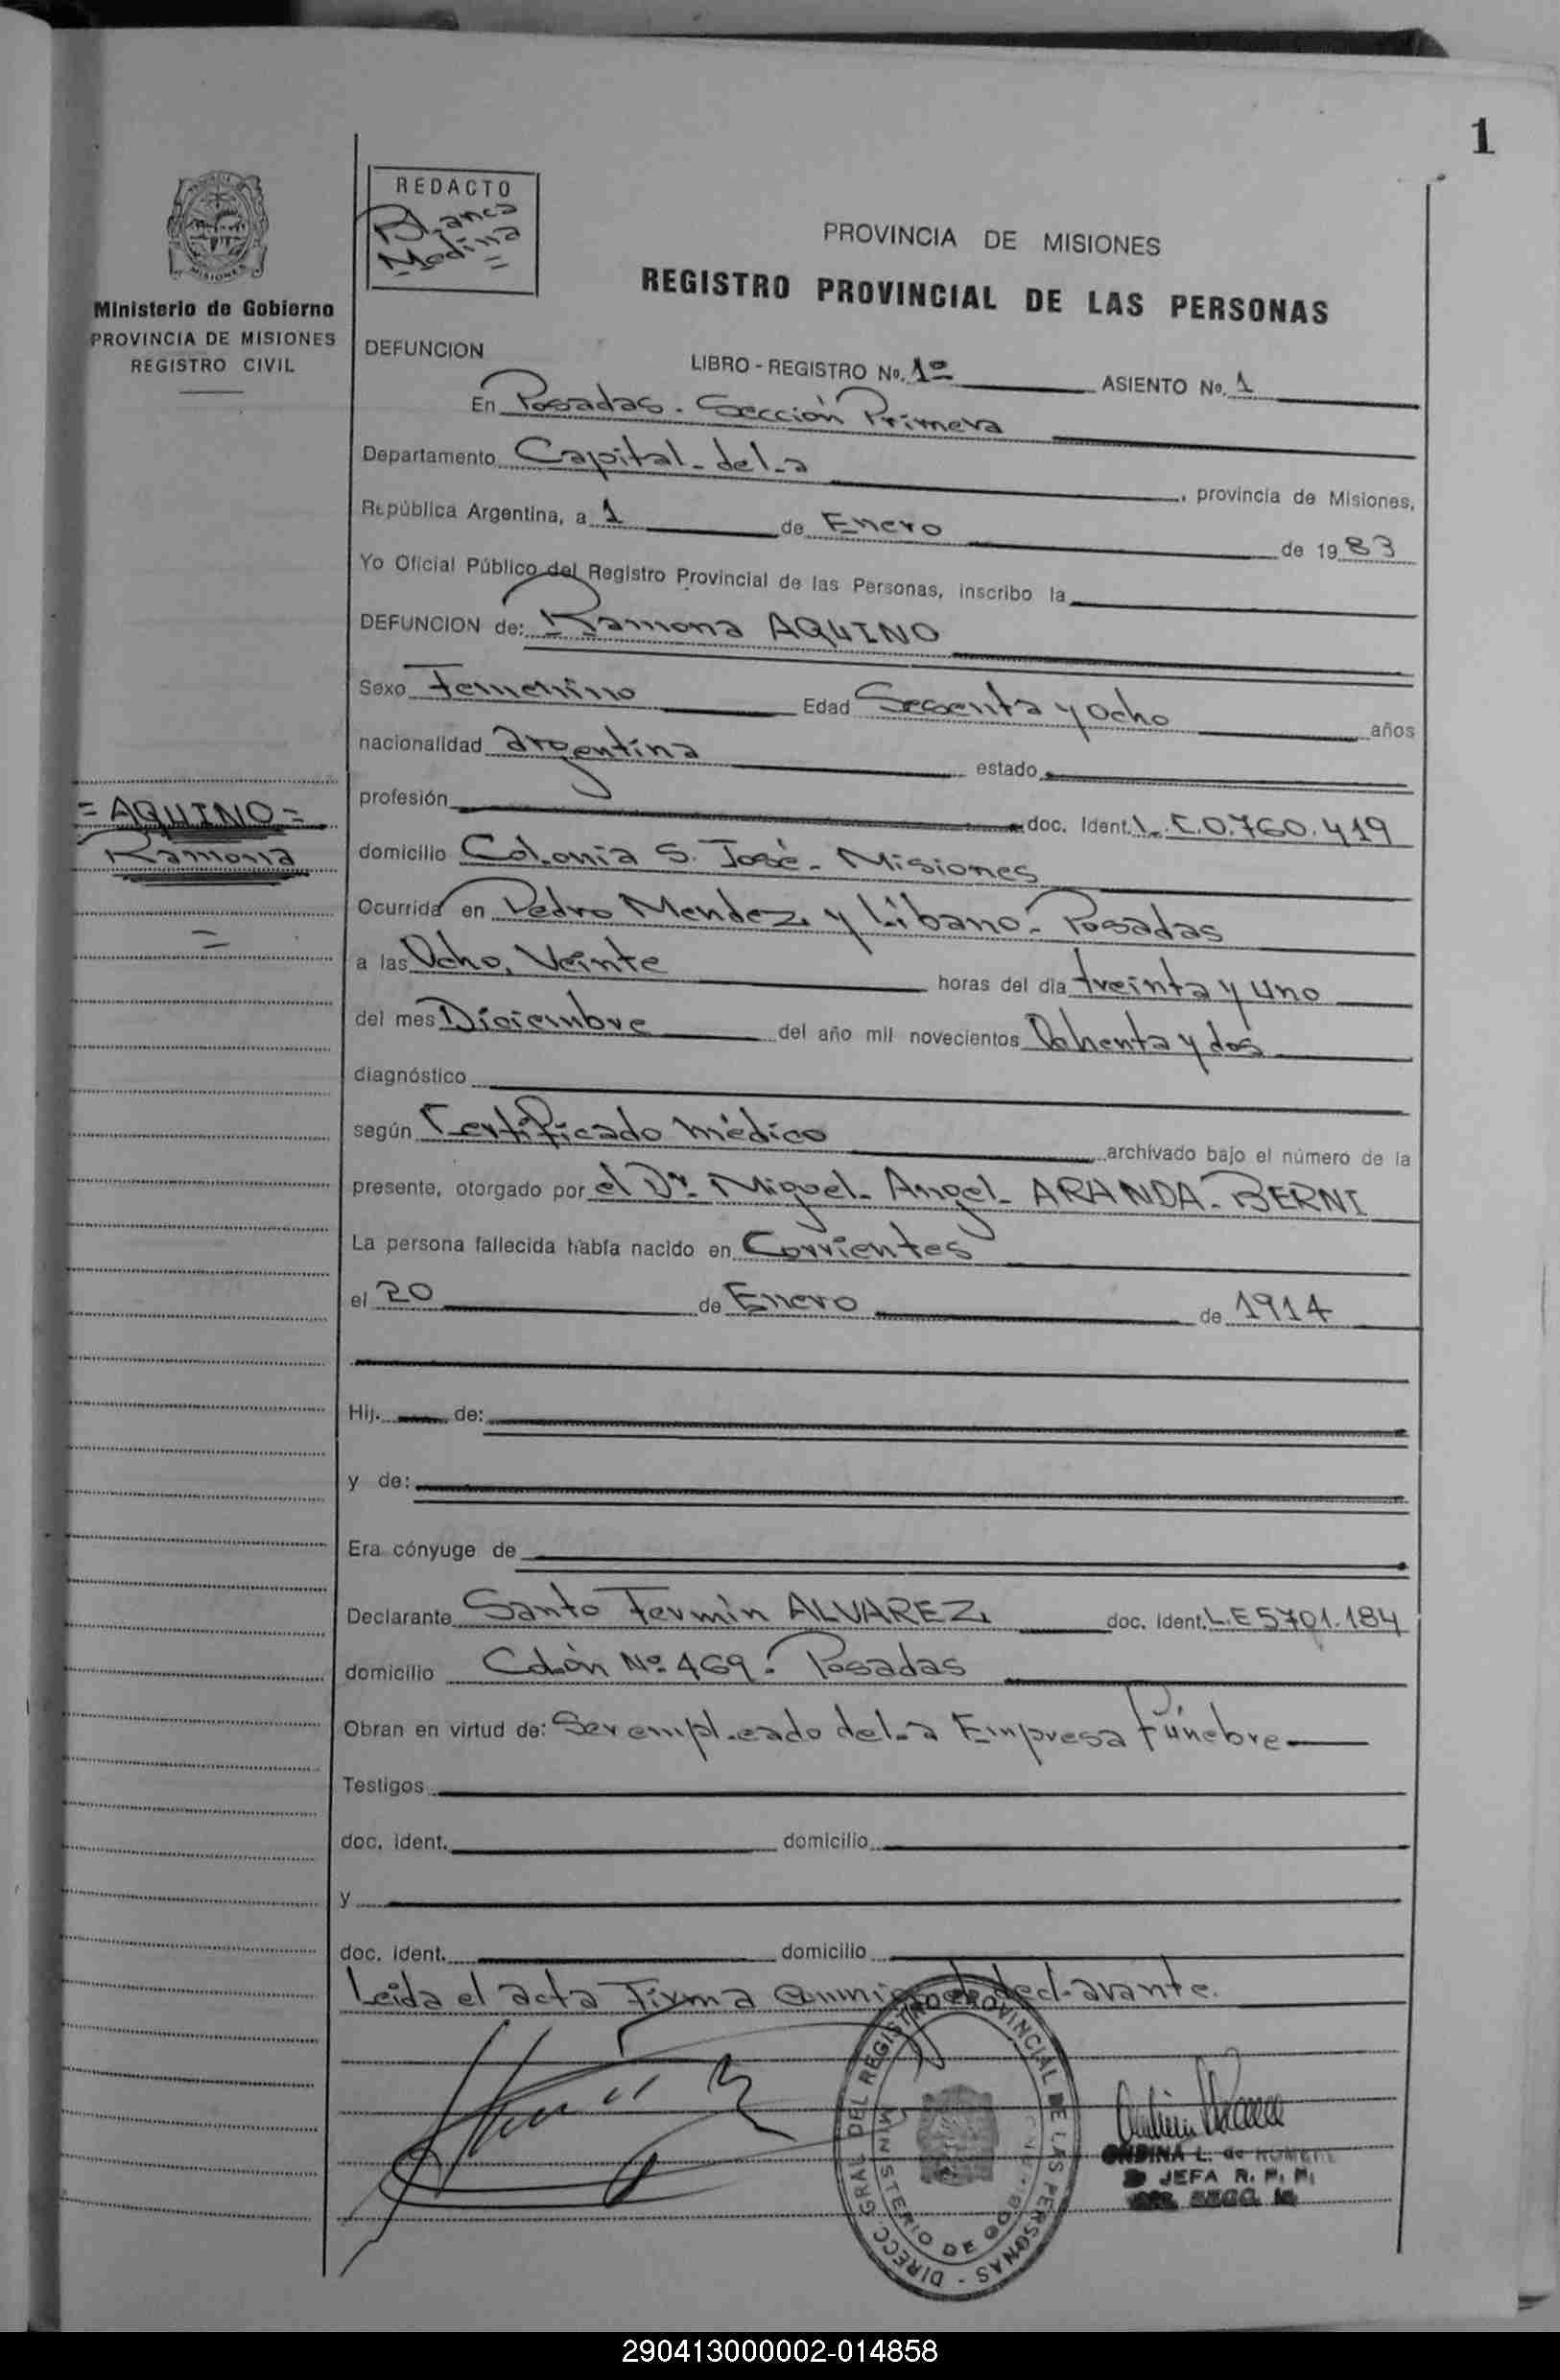 1
REDACTO
Blanca
Medina
MISIONES
Ministerio de Gobierno
PROVINCIA DE MISIONES
REGISTRO CIVIL
PROVINCIA DE MISIONES
REGISTRO PROVINCIAL DE LAS PERSONAS
DEFUNCION LIBRO - REGISTRO No. 1º ASIENTO No. 1
En Posadas. Sección Primera
Departamento Capital de la , provincia de Misiones,
República Argentina, a 1 de Enero de 1983
Yo Oficial Público del Registro Provincial de las Personas, inscribo la
DEFUNCION de: Ramona AQUINO
Sexo Femenino Edad Sesenta y Ocho años
nacionalidad argentina estado
profesión doc. Ident. L.C.0.760.419
= AQUINO =
Ramona
domicilio Colonia S. José - Misiones
Ocurrida en Pedro Mendez y Líbano - Posadas
a las Ocho, Veinte horas del día treinta y uno
del mes Diciembre del año mil novecientos Ochenta y dos
diagnóstico
según Certificado médico archivado bajo el número de la
presente, otorgado por el Dr. Miguel Angel ARANDA - BERNI
La persona fallecida había nacido en Corrientes
el 20 de Enero de 1914
Hij. de:
y de:
Era cónyuge de
Declarante Santo Fermín ALVAREZ doc. ident. L.E 5701.184
domicilio Colón Nº 469 - Posadas
Obran en virtud de: Ser empleado de la Empresa fúnebre
Testigos
doc. ident. domicilio
y
doc. ident. domicilio
Leída el acta Firma conmigo el declarante.
DIRECC. GRAL DEL REGISTRO PROVINCIAL DE LAS PERSONAS -
MINISTERIO DE GOB.
ONDINA L. de
JEFA R. P. P.
290413000002-014858